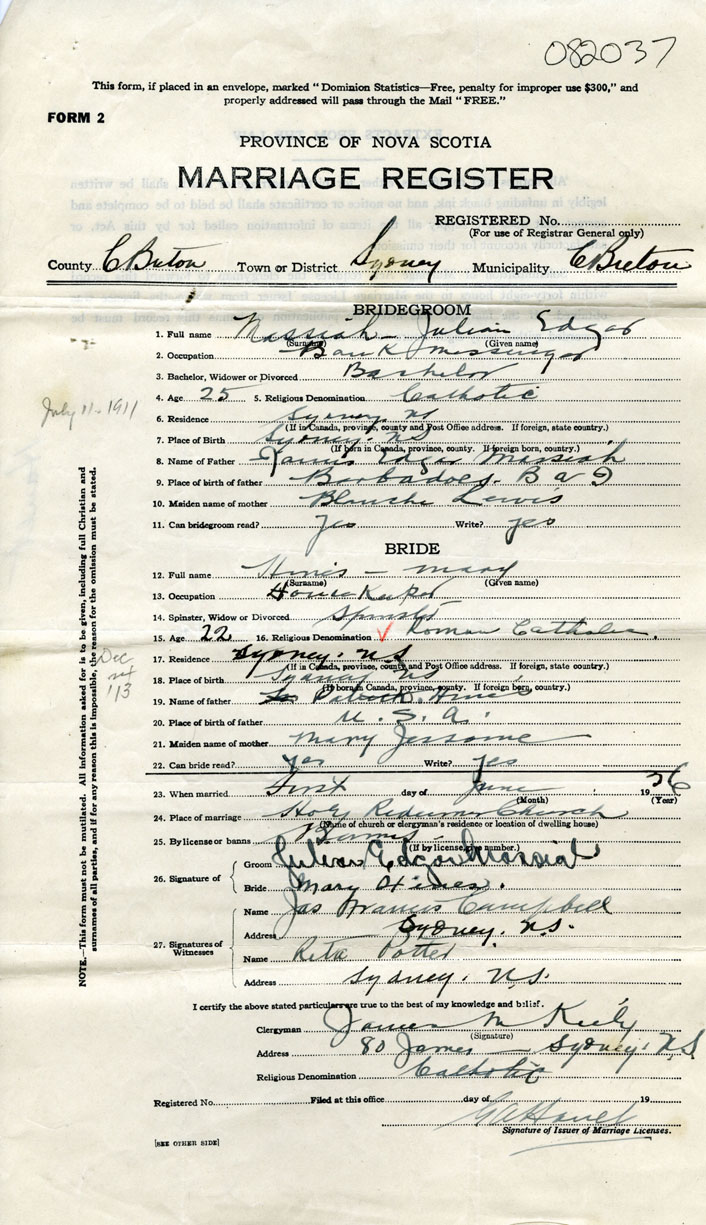 082037
This form, if placed in an envelope, marked "Dominion Statistics—Free, penalty for improper use $300," and
properly addressed will pass through the Mail "FREE."
FORM 2
PROVINCE OF NOVA SCOTIA
MARRIAGE REGISTER
REGISTERED No.
(For use of Registrar General only)
County C Breton Town or District Sydney Municipality C Breton
BRIDEGROOM
1. Full name Massiah - Julian Edgar
(Surname) (Given name)
2. Occupation Bank Messenger
3. Bachelor, Widower or Divorced Bachelor
4. Age 25 5. Religious Denomination Catholic
July 11-1911
6. Residence Sydney. NS
(If in Canada, province, county and Post Office address. If foreign, state country.)
7. Place of Birth Sydney. NS
(If born in Canada, province, county. If foreign born, country.)
8. Name of Father James Edgar Massiah
9. Place of birth of father Barbadoes.
10. Maiden name of mother Blanche Lewis
11. Can bridegroom read? yes Write? yes
BRIDE
12. Full name Hines - Mary
(Surname) (Given name)
13. Occupation House Keeper
14. Spinster, Widow or Divorced Spinster
15. Age 22 16. Religious Denomination Roman Catholic.
17. Residence Sydney. NS
(If in Canada, province, county and Post Office address. If foreign, state country.)
Dec
1/13
18. Place of birth Sydney NS
(If born in Canada, province, county. If foreign born, country.)
19. Name of father Patrick Hines
20. Place of birth of father U. S. A.
21. Maiden name of mother Mary Jessome
22. Can bride read? yes Write? yes
23. When married First day of June 1936
(Month) (Year)
24. Place of marriage Holy Redeemer Church
(Name of church or clergyman's residence or location of dwelling house)
25. By license or banns Banns
(If by license, give number.)
26. Signature of
Groom Julian Edgar Massiah
Bride Mary Hines.
27. Signatures of
Witnesses
Name Jas Francis Campbell
Address Sydney. N.S.
Name Rita Potter
Address Sydney. N.S.
I certify the above stated particulars are true to the best of my knowledge and belief.
Clergyman James M Kiely
(Signature)
Address 80 James - Sydney. N.S
Religious Denomination Catholic
Registered No. Filed at this office day of 19
Signature of Issuer of Marriage Licenses.
[SEE OTHER SIDE]
NOTE.—This form must not be mutilated. All information asked for is to be given, including full Christian and
surnames of all parties, and if for any reason this is impossible, the reason for the omission must be stated.